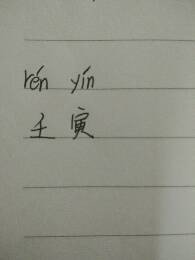 rén yín
壬寅